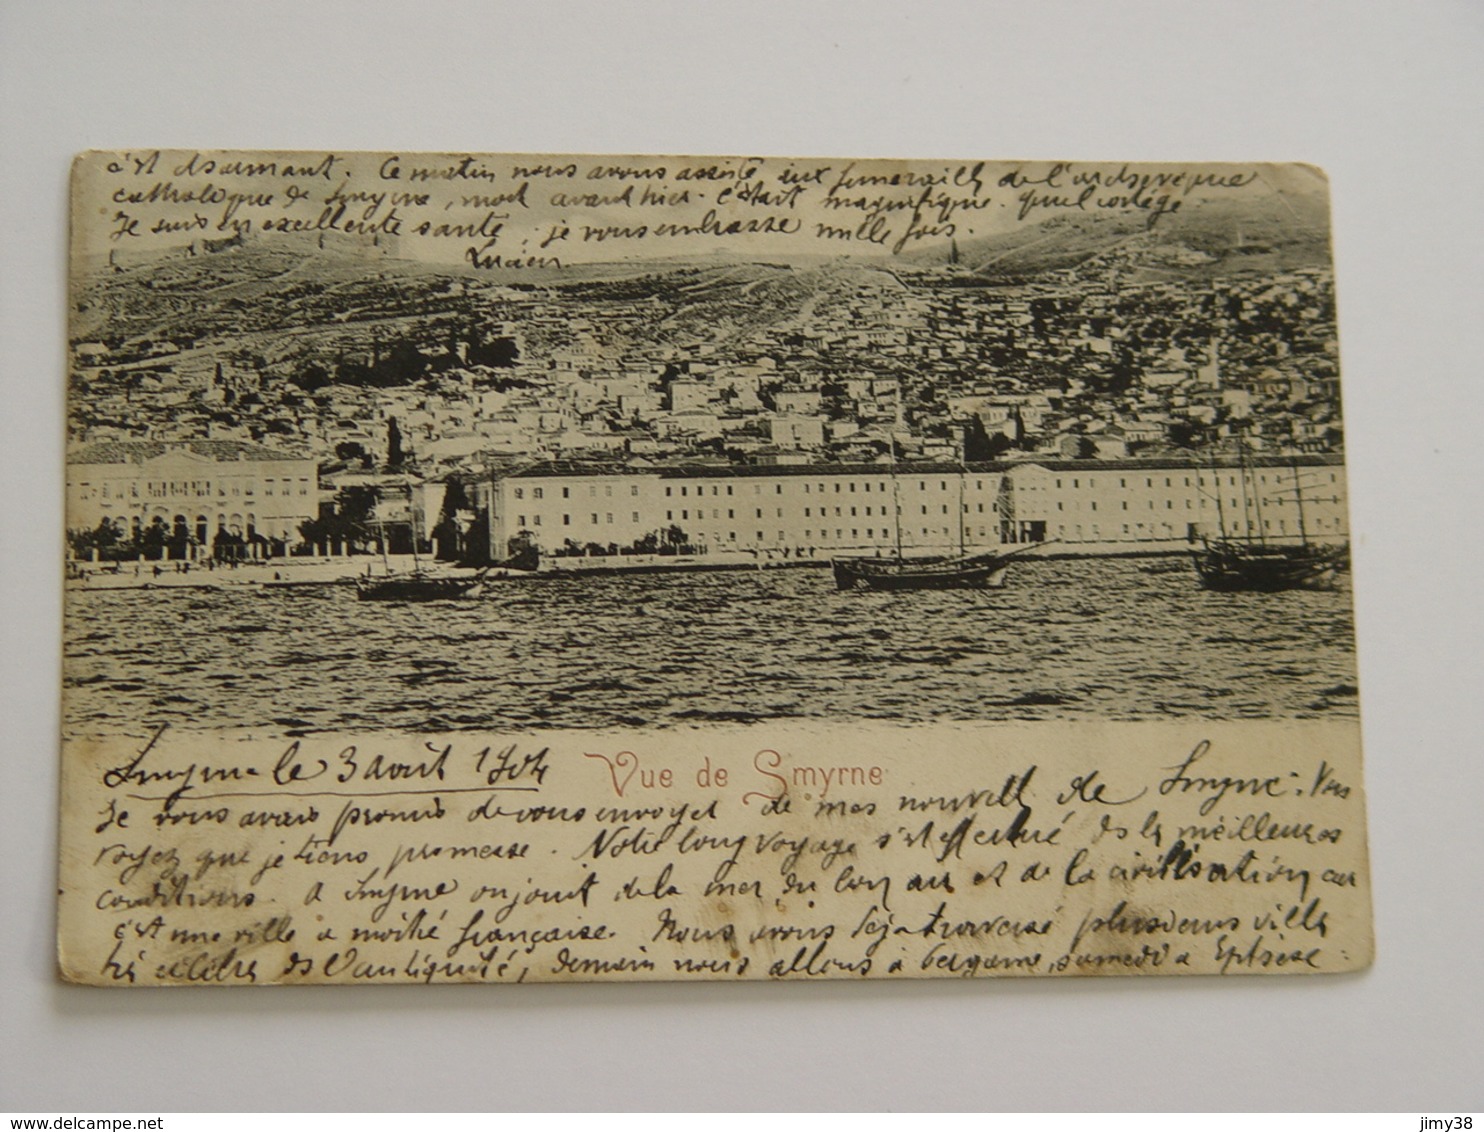 c'est charmant. Ce matin nous avons assisté aux funerailles de l'archeveque
catholoque de Smyrne, mort avant hier. c'était magnifique. quel cortège
Je suis en excellente santé, je vous embrasse mille fois.
Lucien.
Smyrne le 3 août 1904
Vue de Smyrne
Je vous avais promis de vous envoyer de mes nouvelles de Smyrne. Vous
voyez que je tiens promesse. Notre long voyage s'est effectué ds les meilleures
conditions. A Smyrne on jouit de la mer du lon au et de la civilisation car
c'est une ville a moitié française. Nous avons déja traversé plusieurs villes
très célèbres ds l'antiquité, demain nous allons à Bergame, samedi a Ephèse :
www.delcampe.net
jimy38